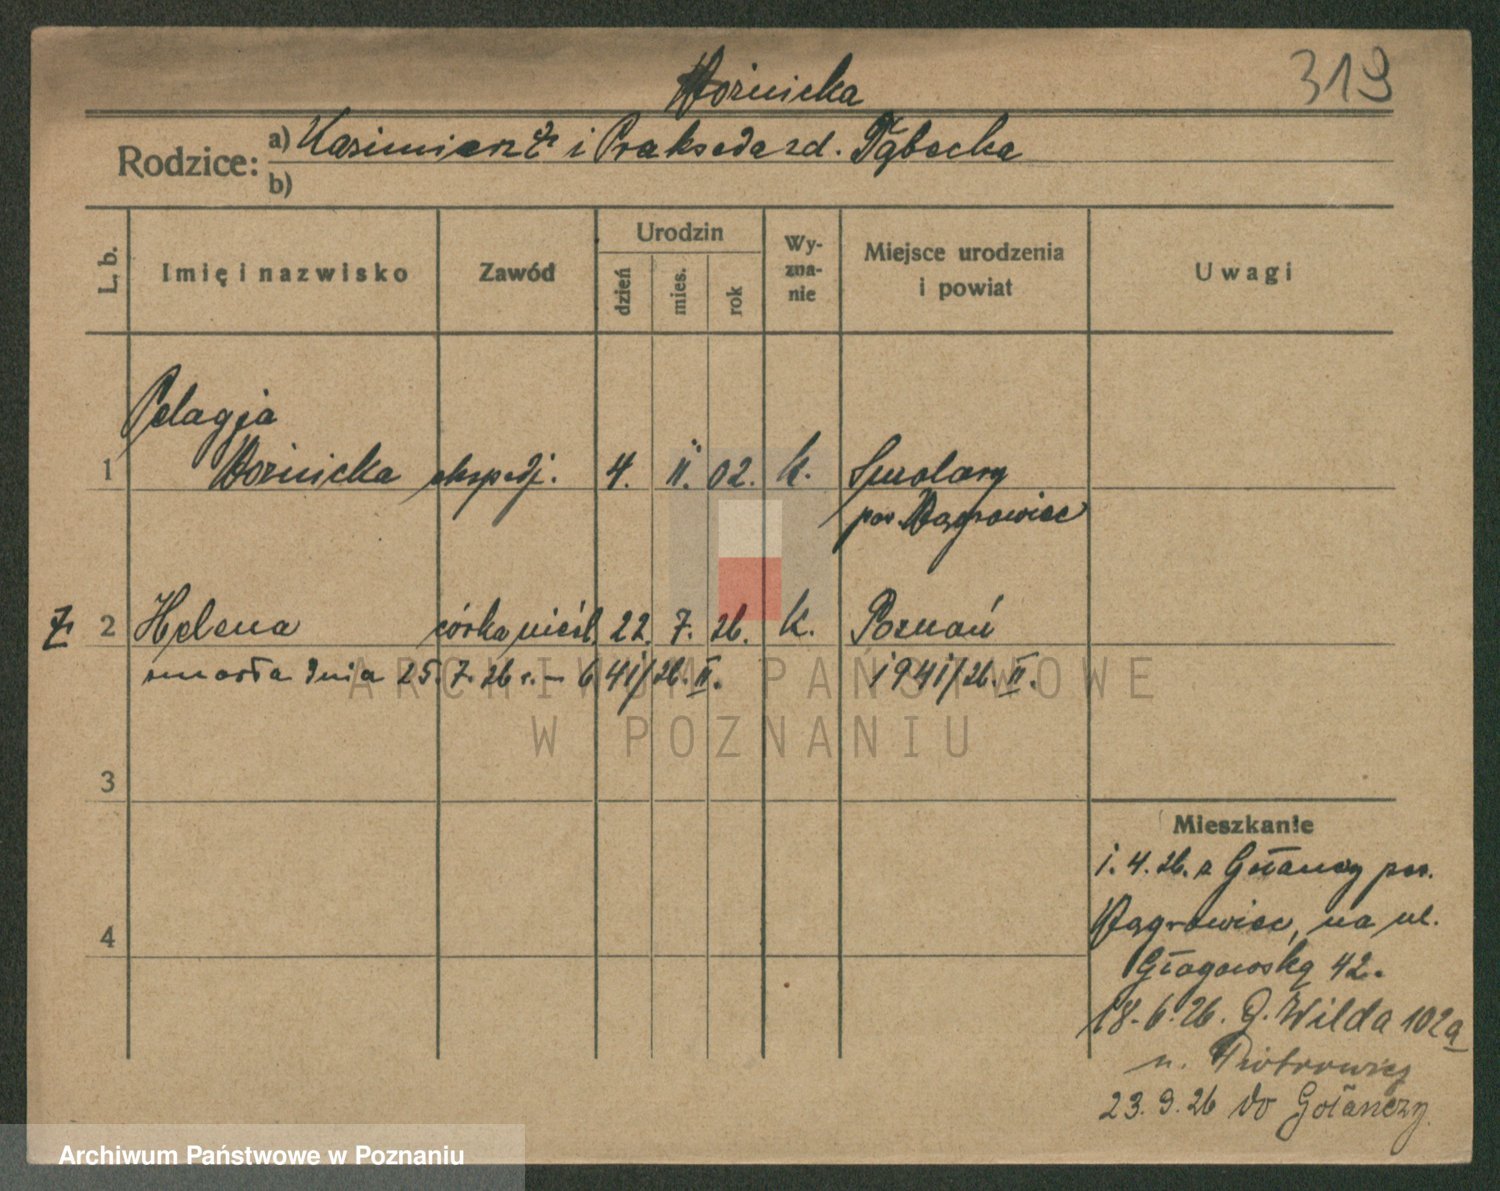 Woźnicka
319
Rodzice:
a) Kazimierz i Prakseda zd. Dąbecka
b)
L. b.
Imię i nazwisko
Zawód
Urodzin
dzień
mies.
rok
Wy-
zna-
nie
Miejsce urodzenia
i powiat
Uwagi
Pelagja
1 Woźnicka ekspedj. 4. II. 02. k. Smolary
pow. Wągrowiec
2 Helena córka nieśl. 22. 7. 26. k. Poznań
zmarła dnia 25. 7. 26 r. – 641/26. II. 1941/26. II.
3
4
Mieszkanie
1. 4. 26. z Gołańczy pow.
Wągrowiec, na ul.
Głogowską 42.
18. 6. 26. G. Wilda 102a
u.
23. 9. 26 do Gołańczy.
ARCHIWUM PAŃSTWOWE
W POZNANIU
Archiwum Państwowe w Poznaniu